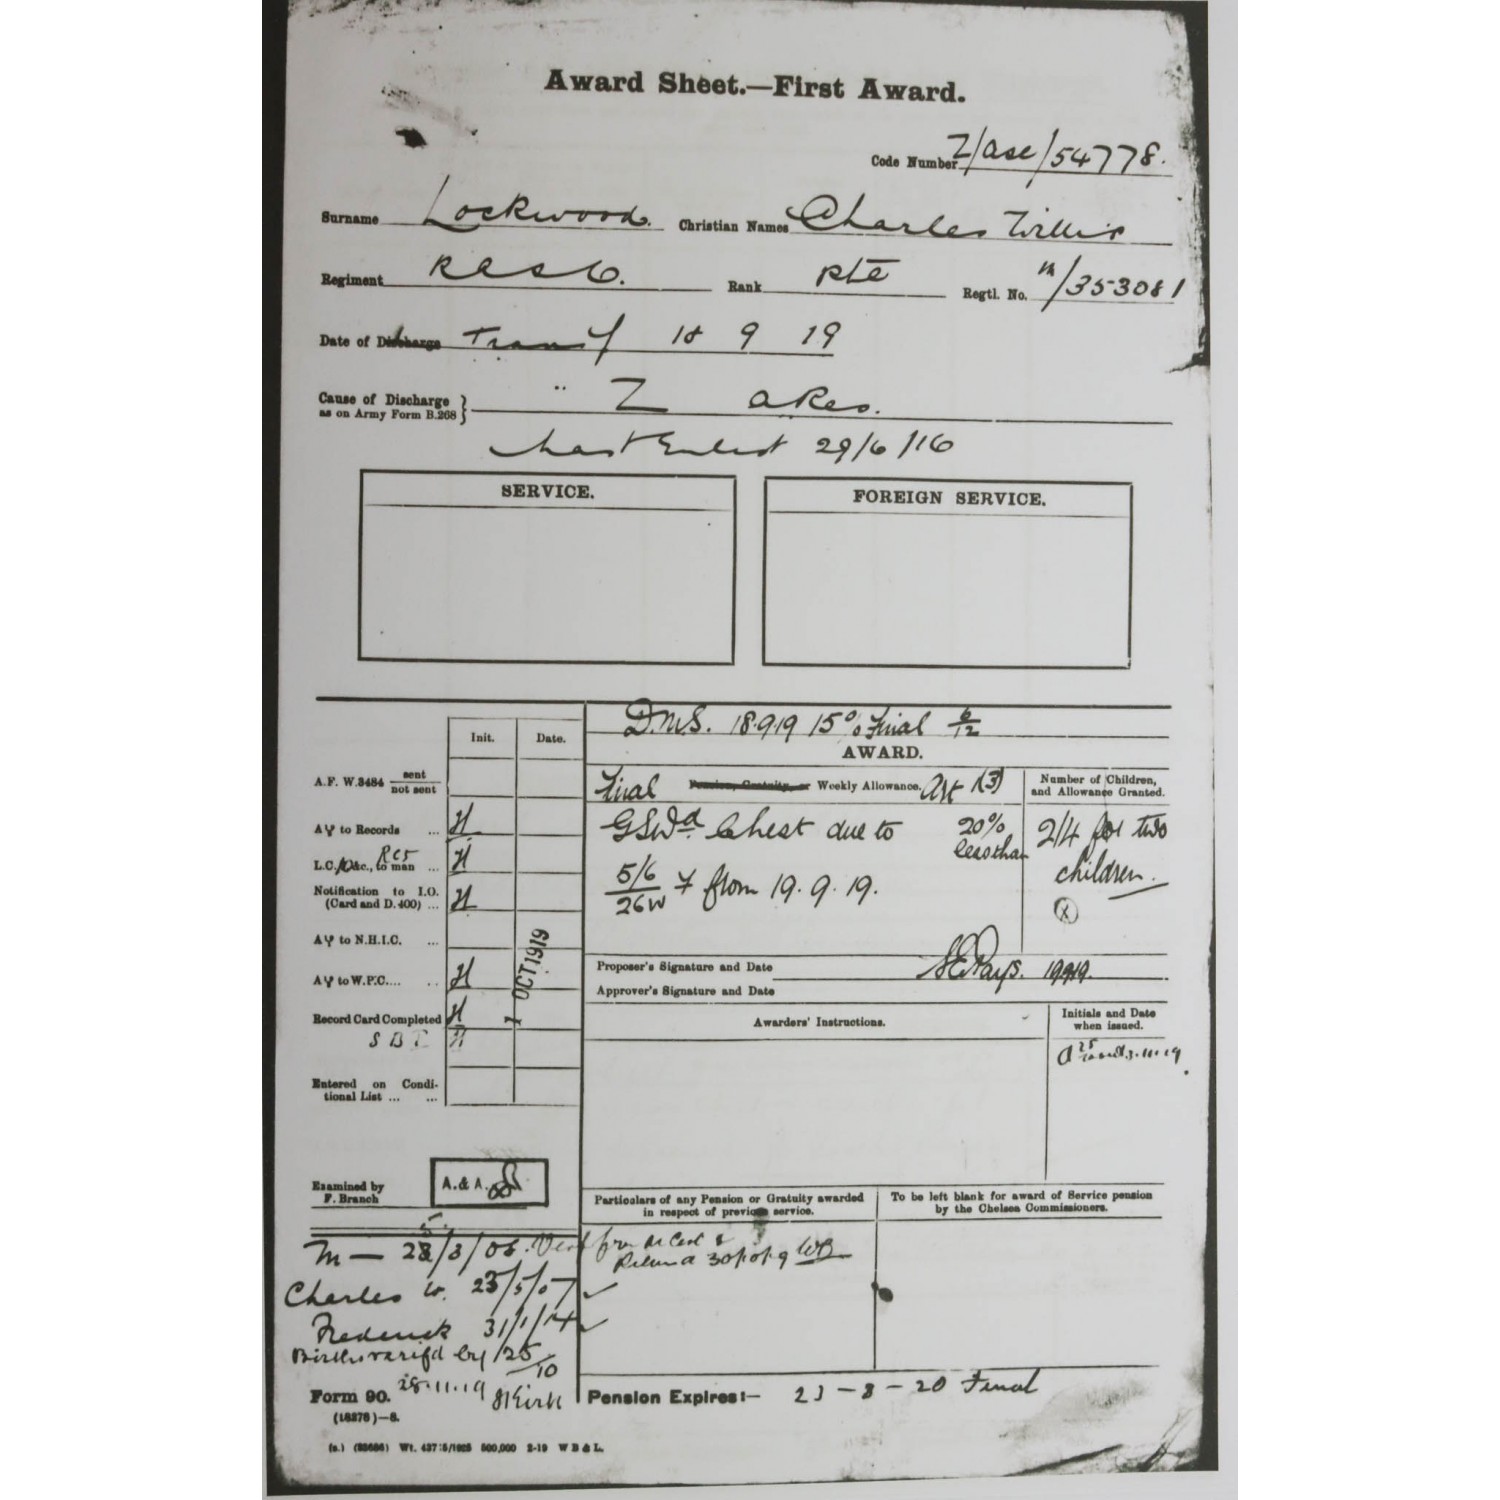 Award Sheet.—First Award.
Code Number Z/ASC/54778.
Surname Lockwood. Christian Names Charles Willis
Regiment RASC. Rank Pte Regtl. No. M/353081
Date of Discharge Transf 18 9 19
Cause of Discharge as on Army Form B.268 } Z ARes.
Last Enlist 29/6/16
SERVICE.
FOREIGN SERVICE.
D.M.S. 18.9.19 15% Final 6/12
AWARD.
Init. Date.
A.F. W.3484 sent / not sent
Final Pension, Gratuity, or Weekly Allowance. Art 1(3)
Number of Children, and Allowance Granted.
AY to Records ... H
GSWd Chest due to 20% less than
2/4 for two children.
L.C./ &c., to man ... H
5/6 / 26W + from 19.9.19.
(X)
Notification to I.O. (Card and D.400) ... H
AY to N.H.I.C. ...
AY to W.P.C.... .. H
1 OCT 1919
Proposer's Signature and Date 19.9.19.
Approver's Signature and Date
Record Card Completed H
S B H
Awarders' Instructions.
Initials and Date when issued.
3.11.19.
Entered on Conditional List ... ...
Examined by F. Branch
A. & A.
Particulars of any Pension or Gratuity awarded in respect of previous service.
To be left blank for award of Service pension by the Chelsea Commissioners.
M — 25/3/06.
Charles W. 25/5/07
Frederick 31/1/14
Births verifd by 125/10
28.11.19
Form 90.
Pension Expires:— 23 - 3 - 20 Final
(18278)—8.
(s.) (23686) Wt. 437:5/1925 500,000 2-19 W B & L.